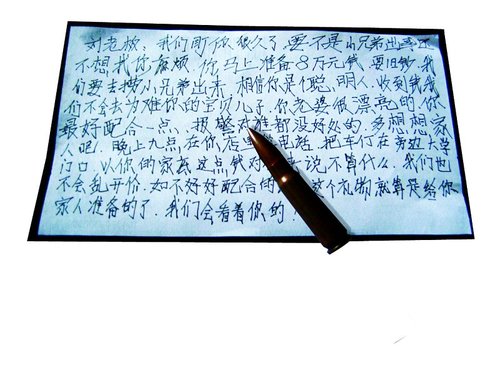 刘老板，我们盯你很久了，要不是小兄弟出事还
不想找你麻烦，你马上准备8万元钱，要旧钞，我
们要去捞小兄弟出来，相信你是个聪明人，收到钱我
们不会去为难你的宝贝儿子，你老婆很漂亮的，你
最好配合一点，报警对谁都没好处的，多想想家
人吧，晚上九点在你店里等电话，把车停在旁边大学
门口，以你的家底这点钱对你来说不算什么，我们也
不会乱开价，如不好好配合的话这个礼物就算是给你
家人准备的了，我们会看着你的